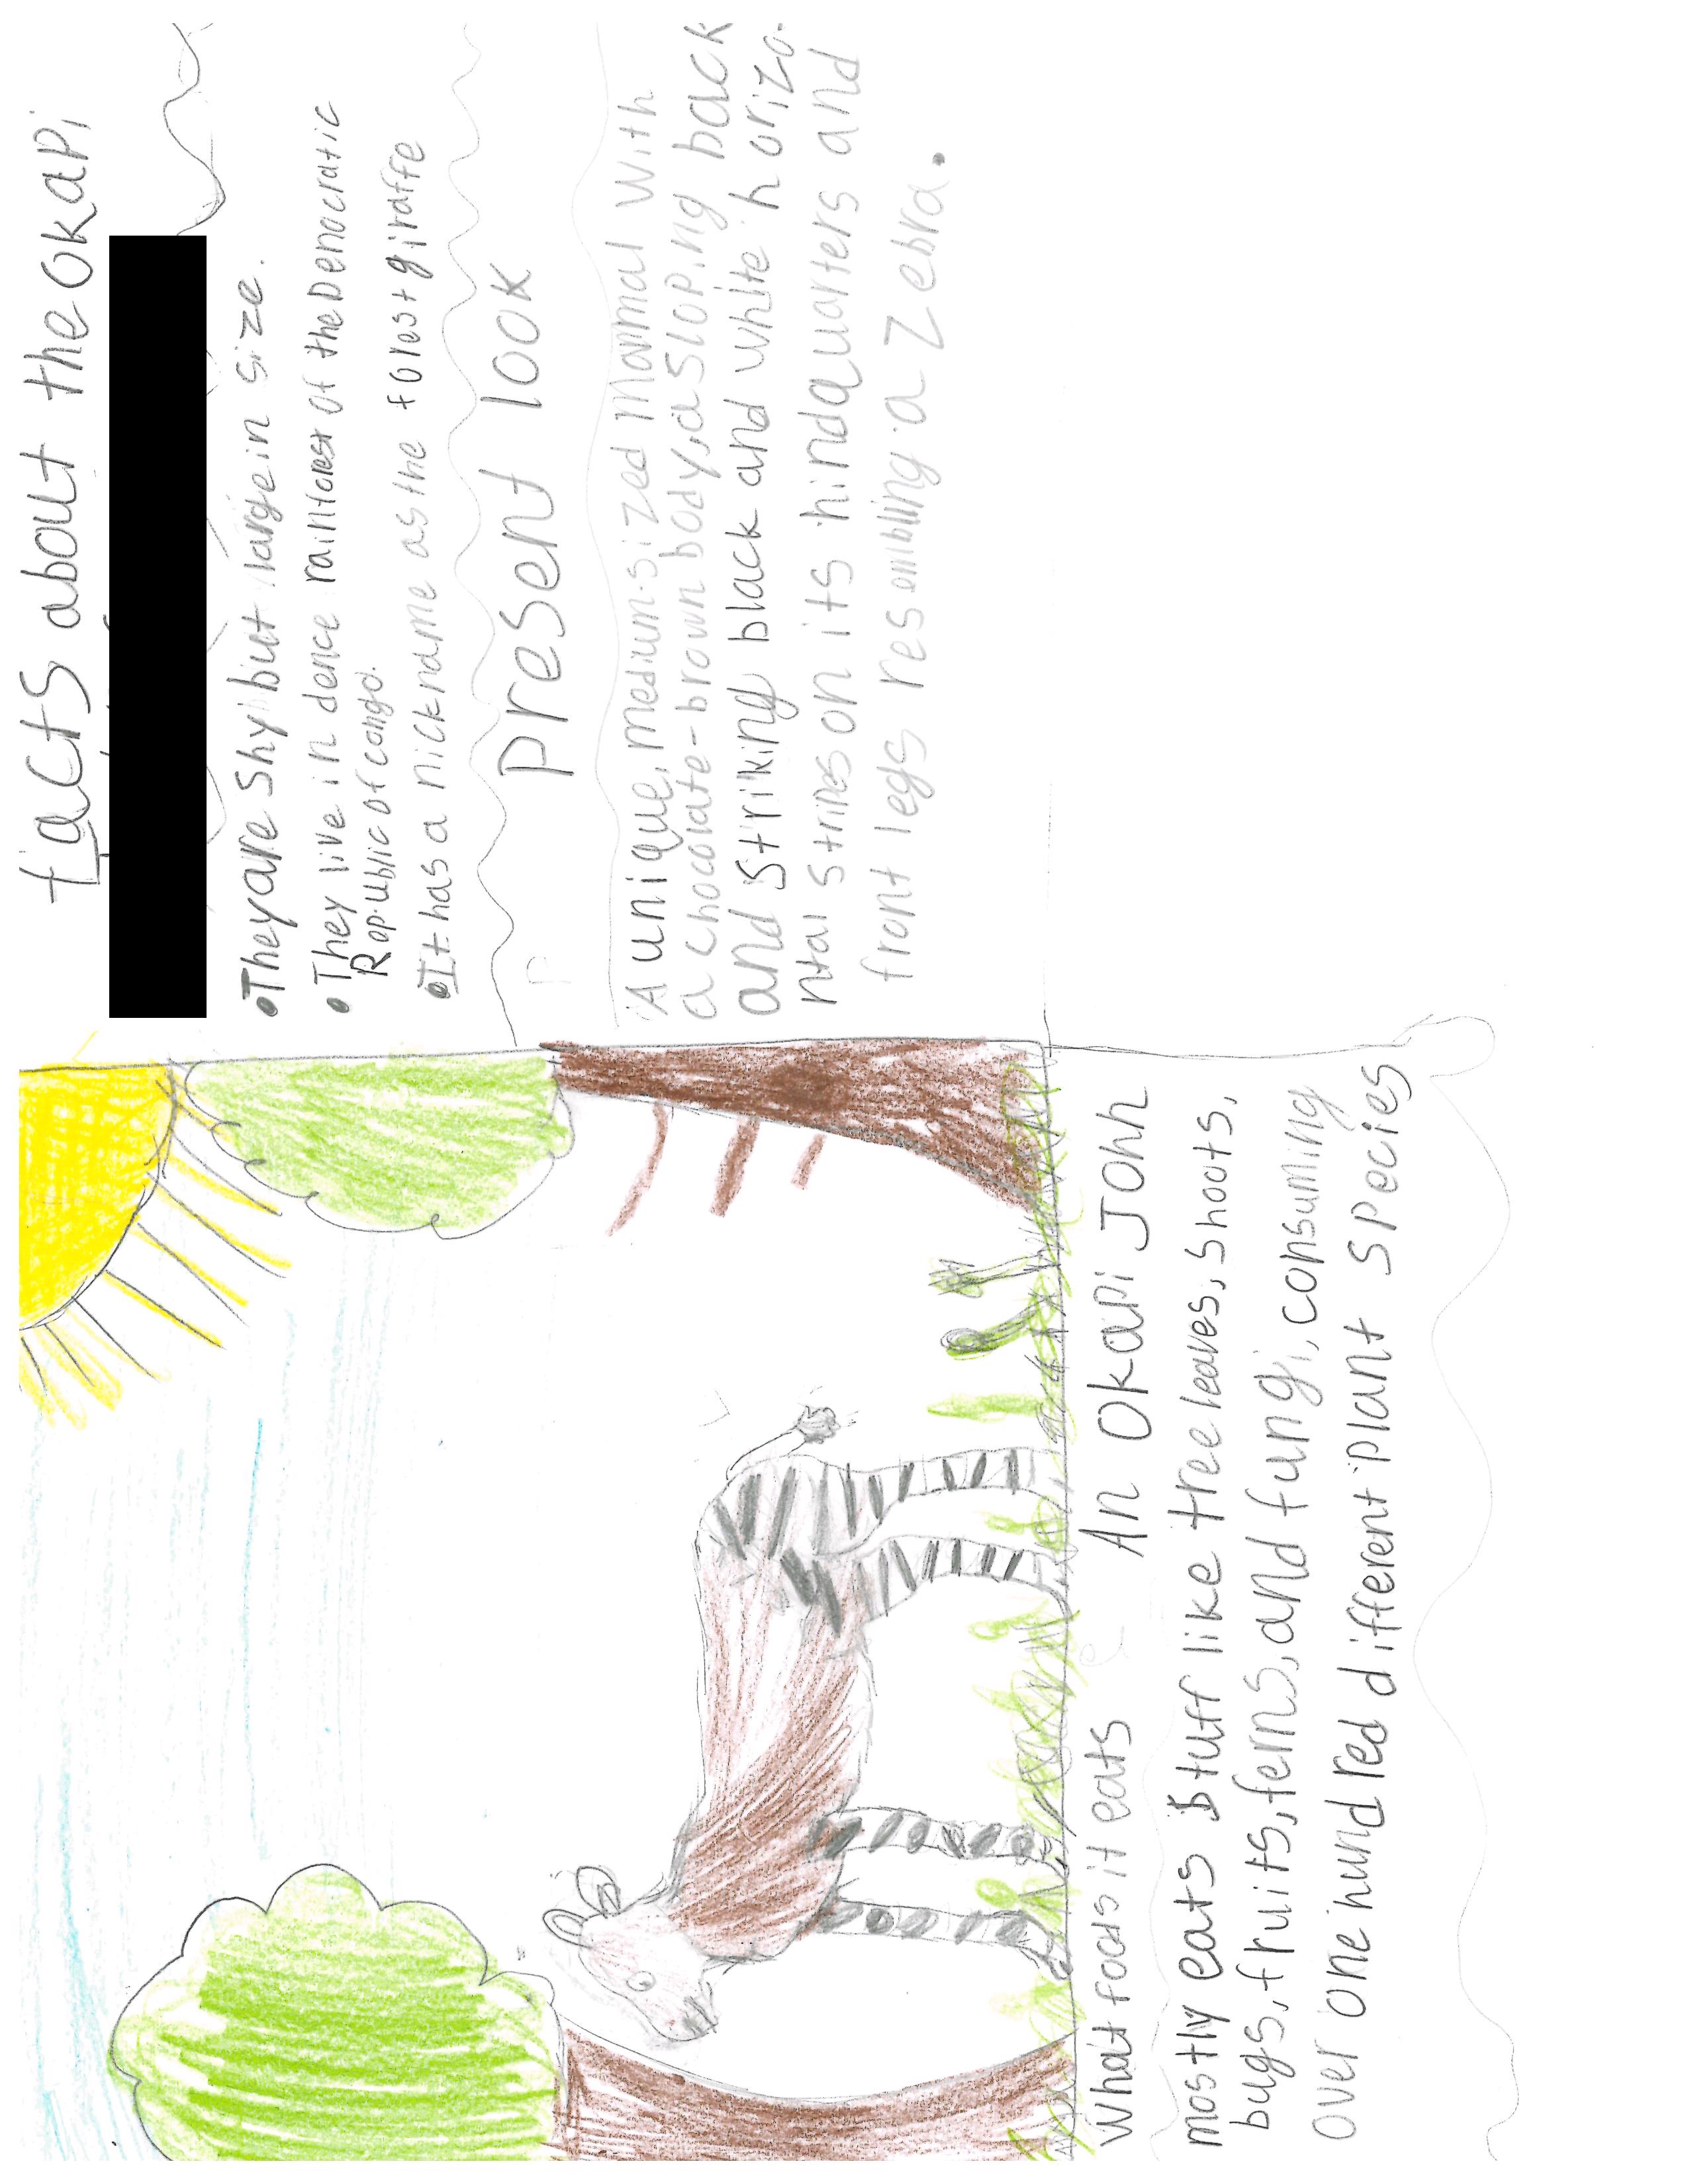 facts about the okapi
•They are shy but large in size.
• They live in dence rainforest of the Democratic
Ropublic of congo.
•It has a nickname as the forest giraffe
present look
A unique, medium-sized mammal with
a chocolate-brown body, a sloping back
and striking black and white horizo-
ntal stripes on its hindquarters and
front legs resembling a zebra.
An Okapi John
What foods it eats
mostly eats stuff like tree leaves, shoots,
bugs, fruits, ferns, and fungi, consuming
over one hundred different plant species